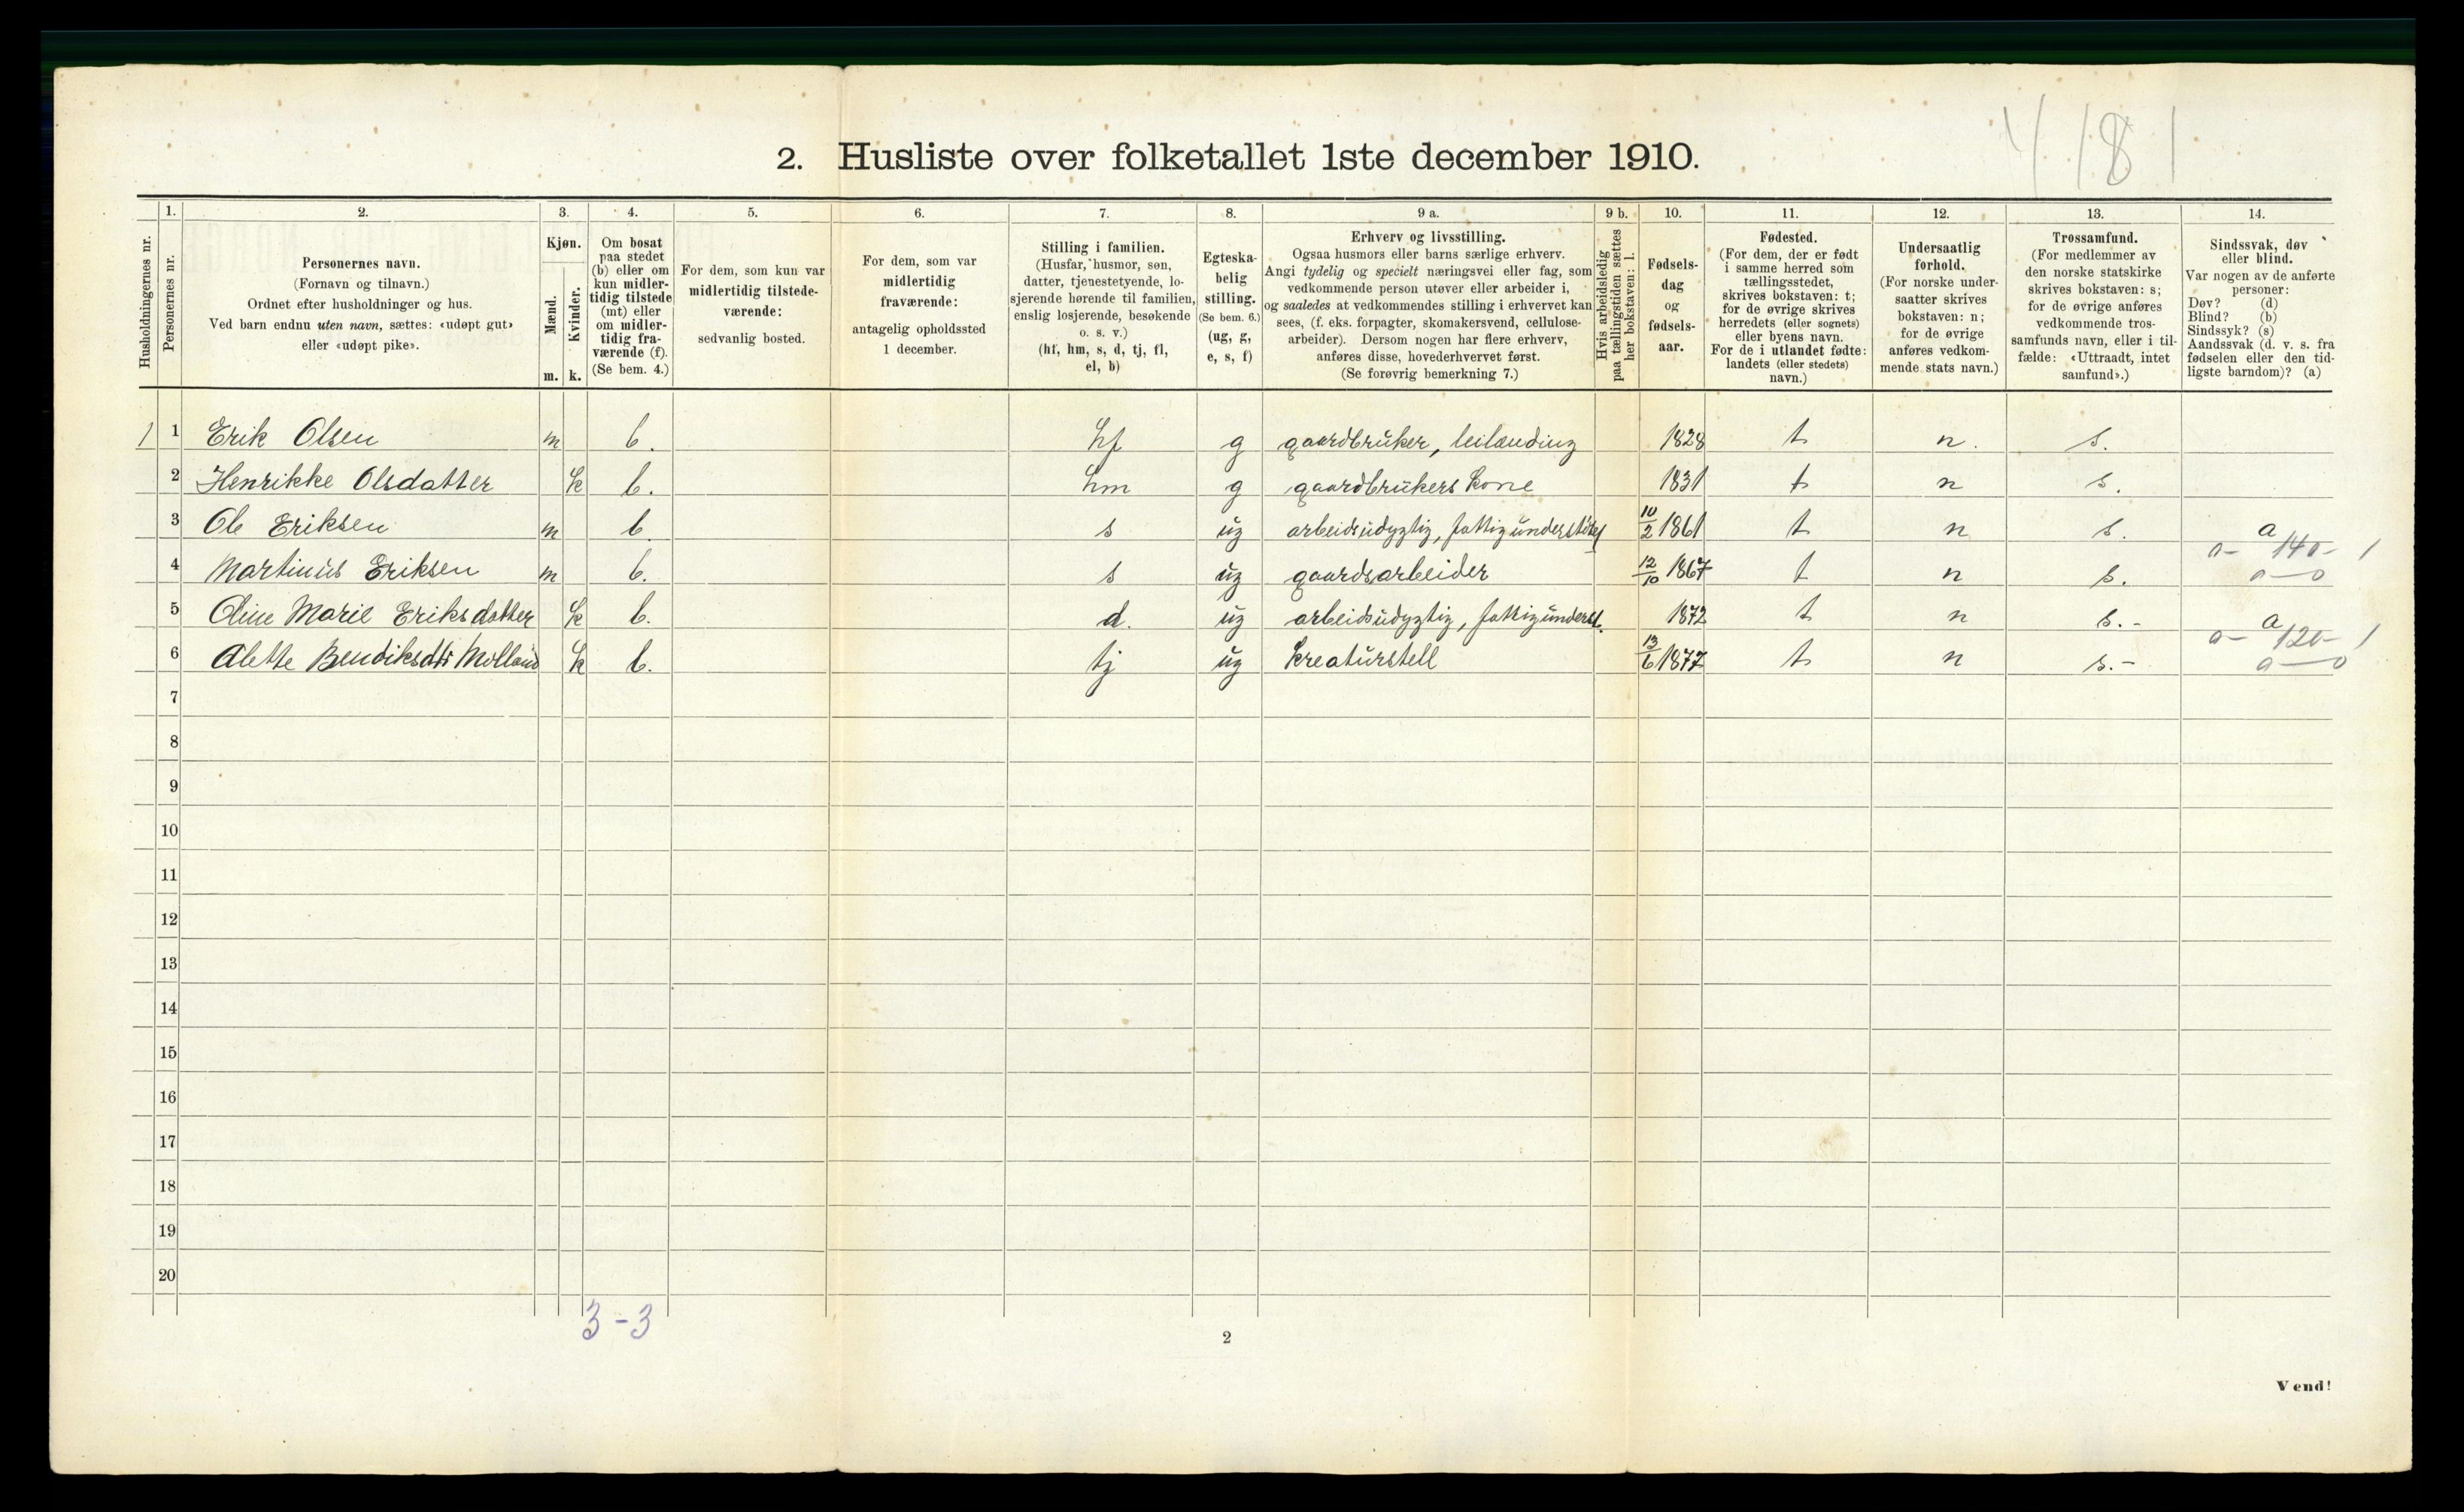 2. Husliste over folketallet 1ste december 1910.
1. 2. 3. 4. 5. 6. 7. 8. 9 a. 9 b. 10. 11. 12. 13. 14.
Husholdningernes nr.
Personernes nr.
Personernes navn.
(Fornavn og tilnavn.)
Ordnet efter husholdninger og hus.
Ved barn endnu uten navn, sættes: «udøpt gut»
eller «udøpt pike».
Kjøn.
Mænd.
Kvinder.
m. k.
Om bosat
paa stedet
(b) eller om
kun midler-
tidig tilstede
(mt) eller
om midler-
tidig fra-
værende (f).
(Se bem. 4.)
For dem, som kun var
midlertidig tilstede-
værende:
sedvanlig bosted.
For dem, som var
midlertidig
fraværende:
antagelig opholdssted
1 december.
Stilling i familien.
(Husfar, husmor, søn,
datter, tjenestetyende, lo-
sjerende hørende til familien,
enslig losjerende, besøkende
o. s. v.)
(hf, hm, s, d, tj, fl,
el, b)
Egteska-
belig
stilling.
(Se bem. 6.)
(ug, g,
e, s, f)
Erhverv og livsstilling.
Ogsaa husmors eller barns særlige erhverv.
Angi tydelig og specielt næringsvei eller fag, som
vedkommende person utøver eller arbeider i,
og saaledes at vedkommendes stilling i erhvervet kan
sees, (f. eks. forpagter, skomakersvend, cellulose-
arbeider). Dersom nogen har flere erhverv,
anføres disse, hovederhvervet først.
(Se forøvrig bemerkning 7.)
Hvis arbeidsledig
paa tællingstiden sættes
her bokstaven: l.
Fødsels-
dag
og
fødsels-
aar.
Fødested.
(For dem, der er født
i samme herred som
tællingsstedet,
skrives bokstaven: t;
for de øvrige skrives
herredets (eller sognets)
eller byens navn.
For de i utlandet fødte:
landets (eller stedets)
navn.)
Undersaatlig
forhold.
(For norske under-
saatter skrives
bokstaven: n;
for de øvrige
anføres vedkom-
mende stats navn.)
Trossamfund.
(For medlemmer av
den norske statskirke
skrives bokstaven: s;
for de øvrige anføres
vedkommende tros-
samfunds navn, eller i til-
fælde: «Uttraadt, intet
samfund».)
Sindssvak, døv
eller blind.
Var nogen av de anførte
personer:
Døv? (d)
Blind? (b)
Sindssyk? (s)
Aandssvak (d. v. s. fra
fødselen eller den tid-
ligste barndom)? (a)
1 1 Erik Olsen m b. hf g gaardbruker, leilænding 1828 t n. s.
2 Henrikke Olsdatter k b. hm g gaardbrukers kone 1831 t n s.
3 Ole Eriksen m b. s ug arbeidsudygtig, fattigunderstöttet 10/2 1861 t n s. a
a- 140- 1
4 Martinus Eriksen m b. s ug gaardsarbeider 12/10 1867 t n s. a—o
5 Oline Marie Eriksdatter k b. d. ug arbeidsudygtig, fattigunderst. 1872 t n s.- a
a- 120- 1
6 Alette Bendiksdtr Molland k b. tj ug kreaturstell 13/6 1877 t n s.- a—o
7
8
9
10
11
12
13
14
15
16
17
18
19
20
3-3
2
Vend!